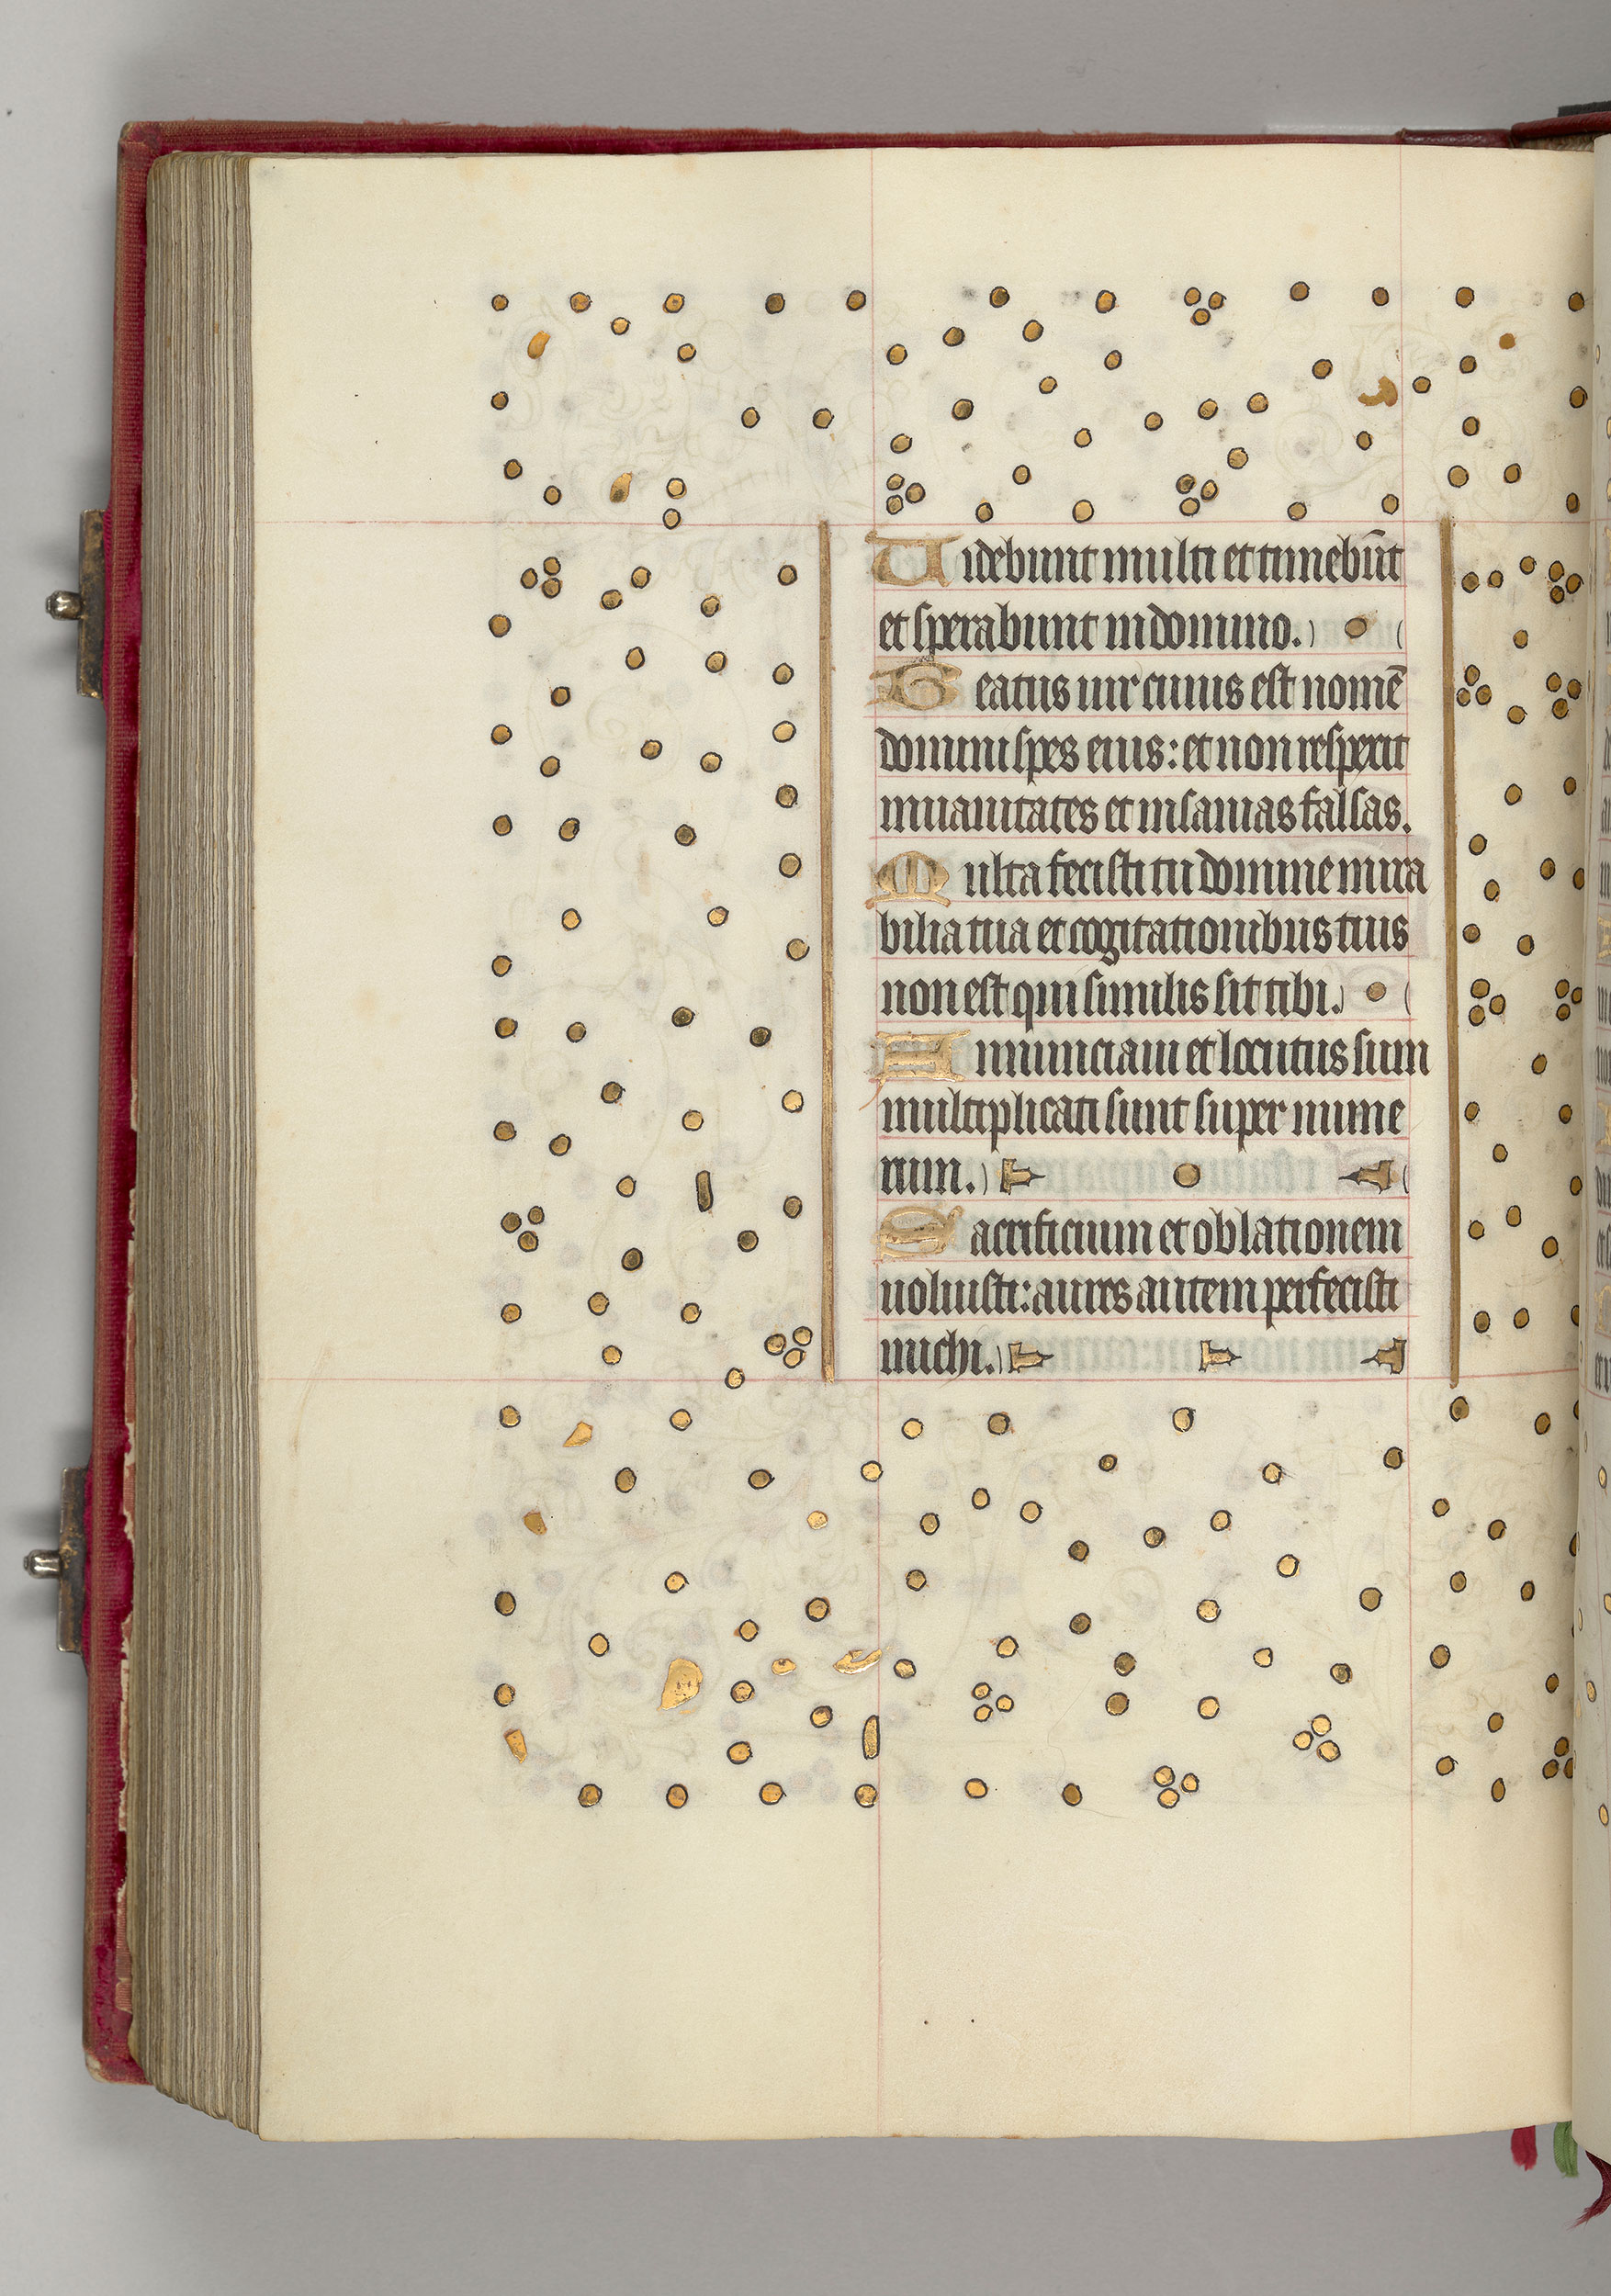 Videbunt multi et timebūt
et sperabunt in domino.
Beatus uir cuius est nomē
domini spes eius: et non respexit
in uanitates et insanias falsas.
Multa fecisti tu domine mira
bilia tua et cogitationibus tuis
non est qui similis sit tibi.
Annunciaui et locutus sum
multiplicati sunt super nume
rum.
Sacrificium et oblationem
noluisti: aures autem perfecisti
michi.